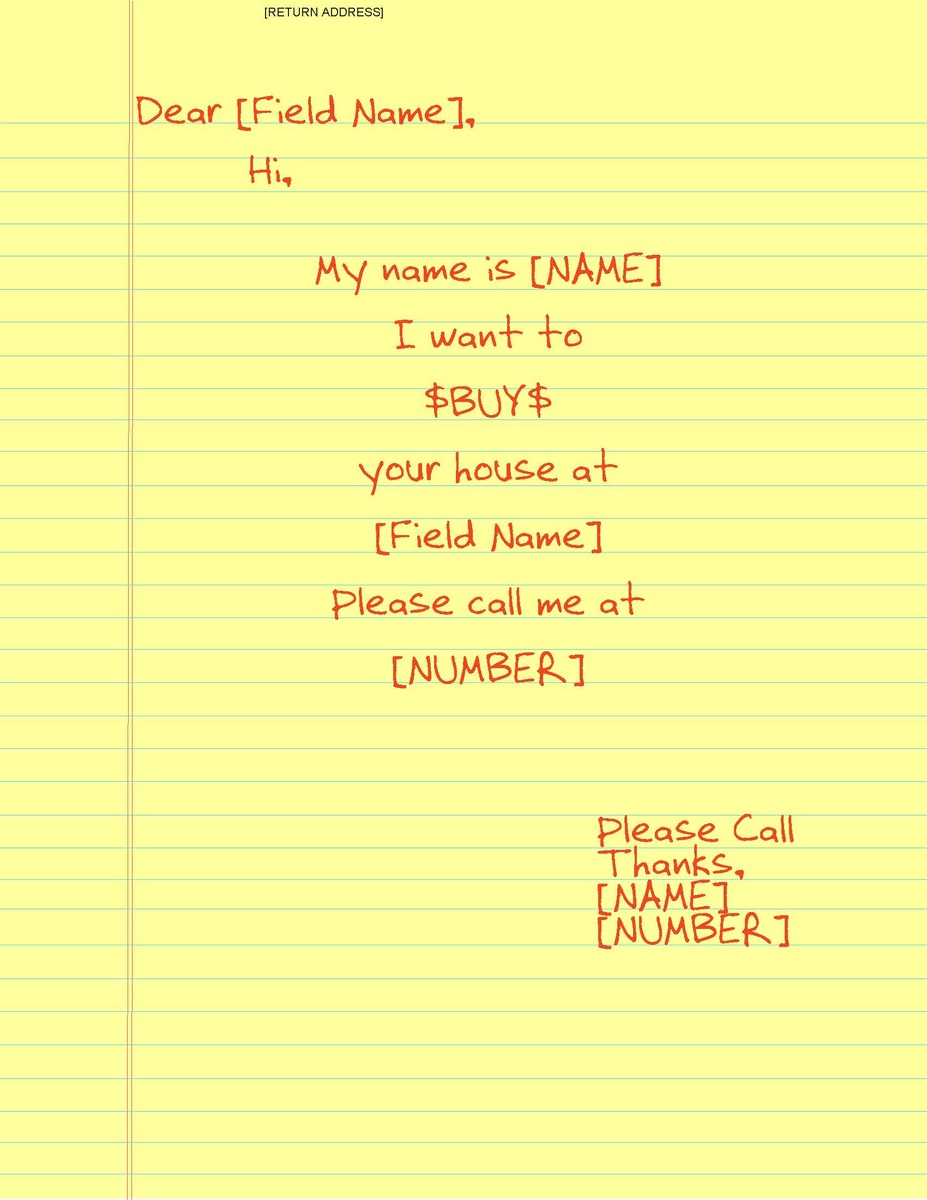 [RETURN ADDRESS]
Dear [Field Name],
Hi,
My name is [NAME]
I want to
$BUY$
your house at
[Field Name]
Please call me at
[NUMBER]
Please Call
Thanks,
[NAME]
[NUMBER]